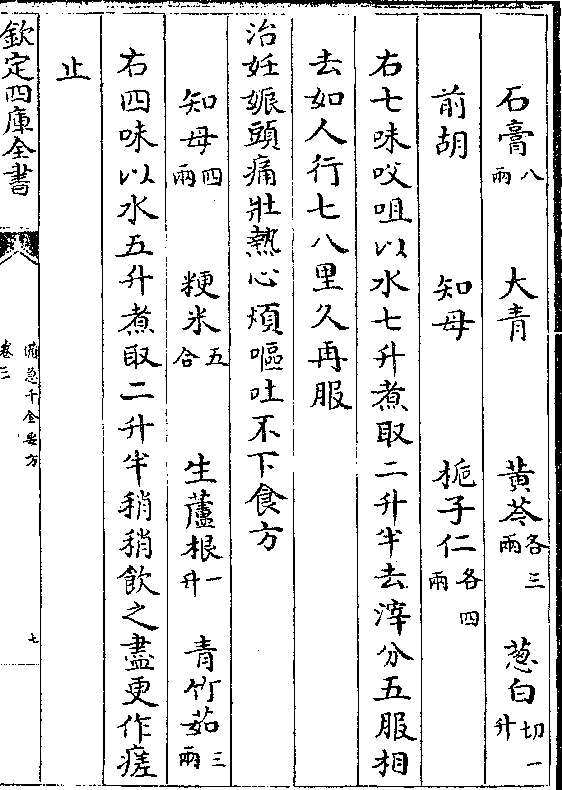 石膏八兩 大青 黃芩各三兩 葱白切一升
前胡 知母 梔子仁各四兩
右七味㕮咀以水七升煮取二升半去滓分五服相
去如人行七八里久再服
治妊娠頭痛壯熱心煩嘔吐不下食方
知母四兩 粳米五合 生蘆根一升 青竹茹三兩
右四味以水五升煮取二升半稍稍飲之盡更作瘥
止
欽定四庫全書
備急千金要方
卷三
七